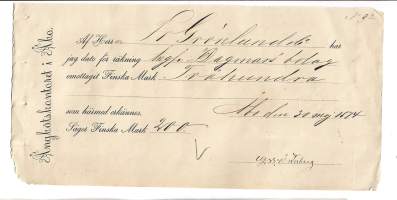 Ångbåtskontoret i Åbo.
Af Herr Grönlund & Co har
jag dato för räkning Ångf. Dagmars bolag
emottaget Finska Mark Tvåhundra
som härmed erkännes. Åbo den 30 maj 1874
Säger Finska Mark 200